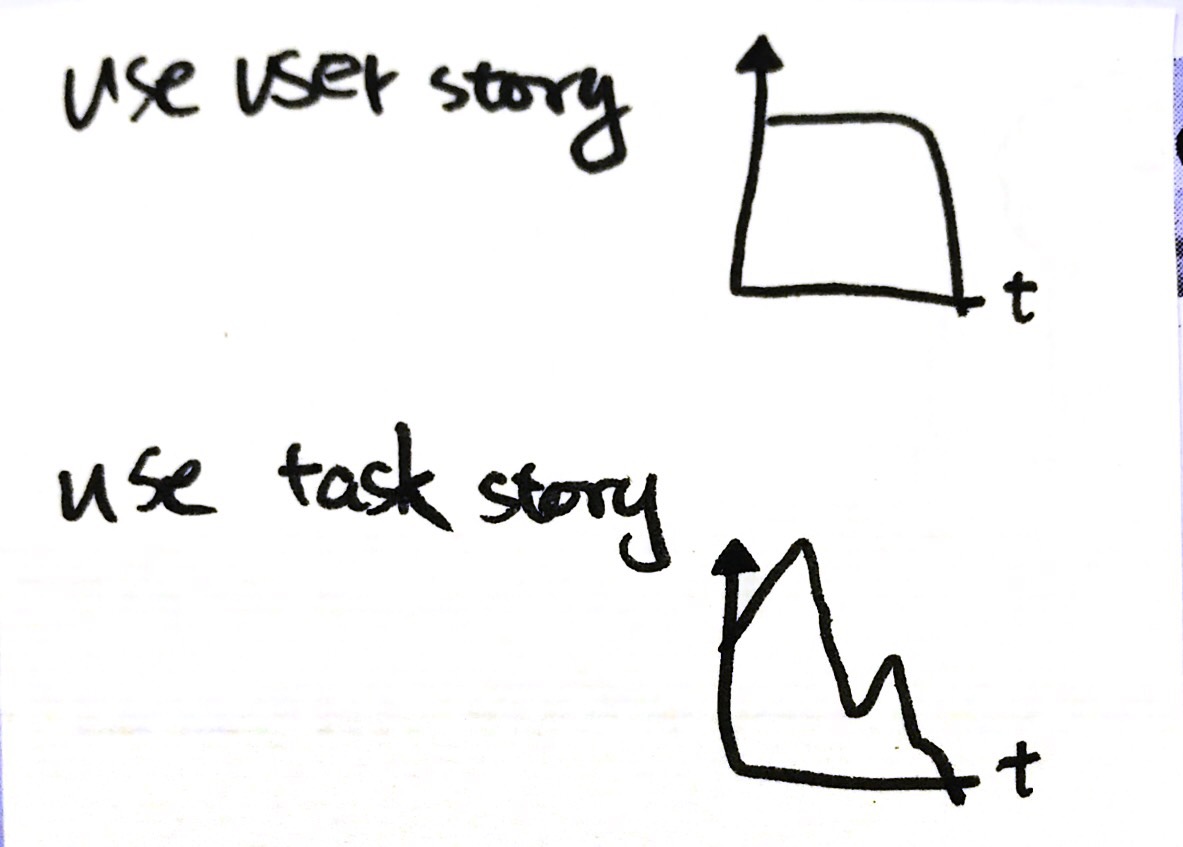 use user story
t
use task story
t